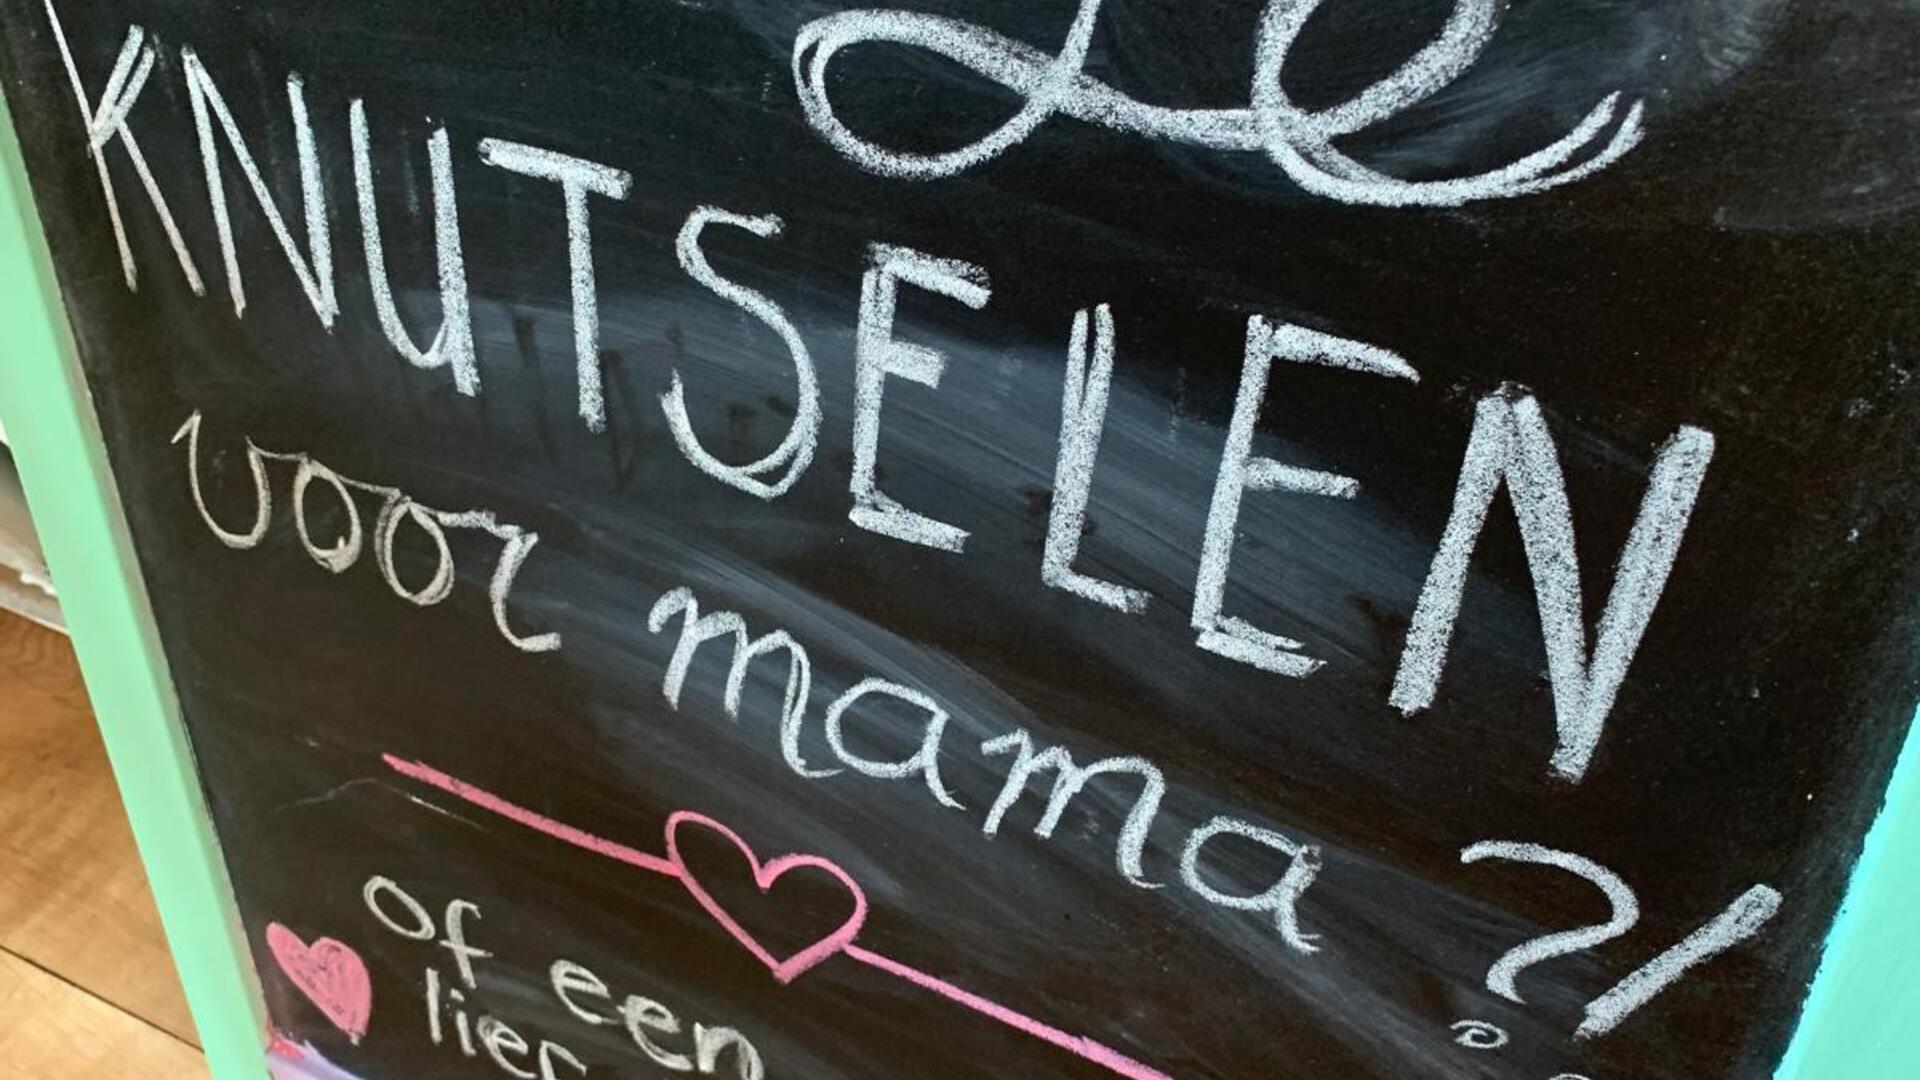 KNUTSELEN
voor mama ?!
of een